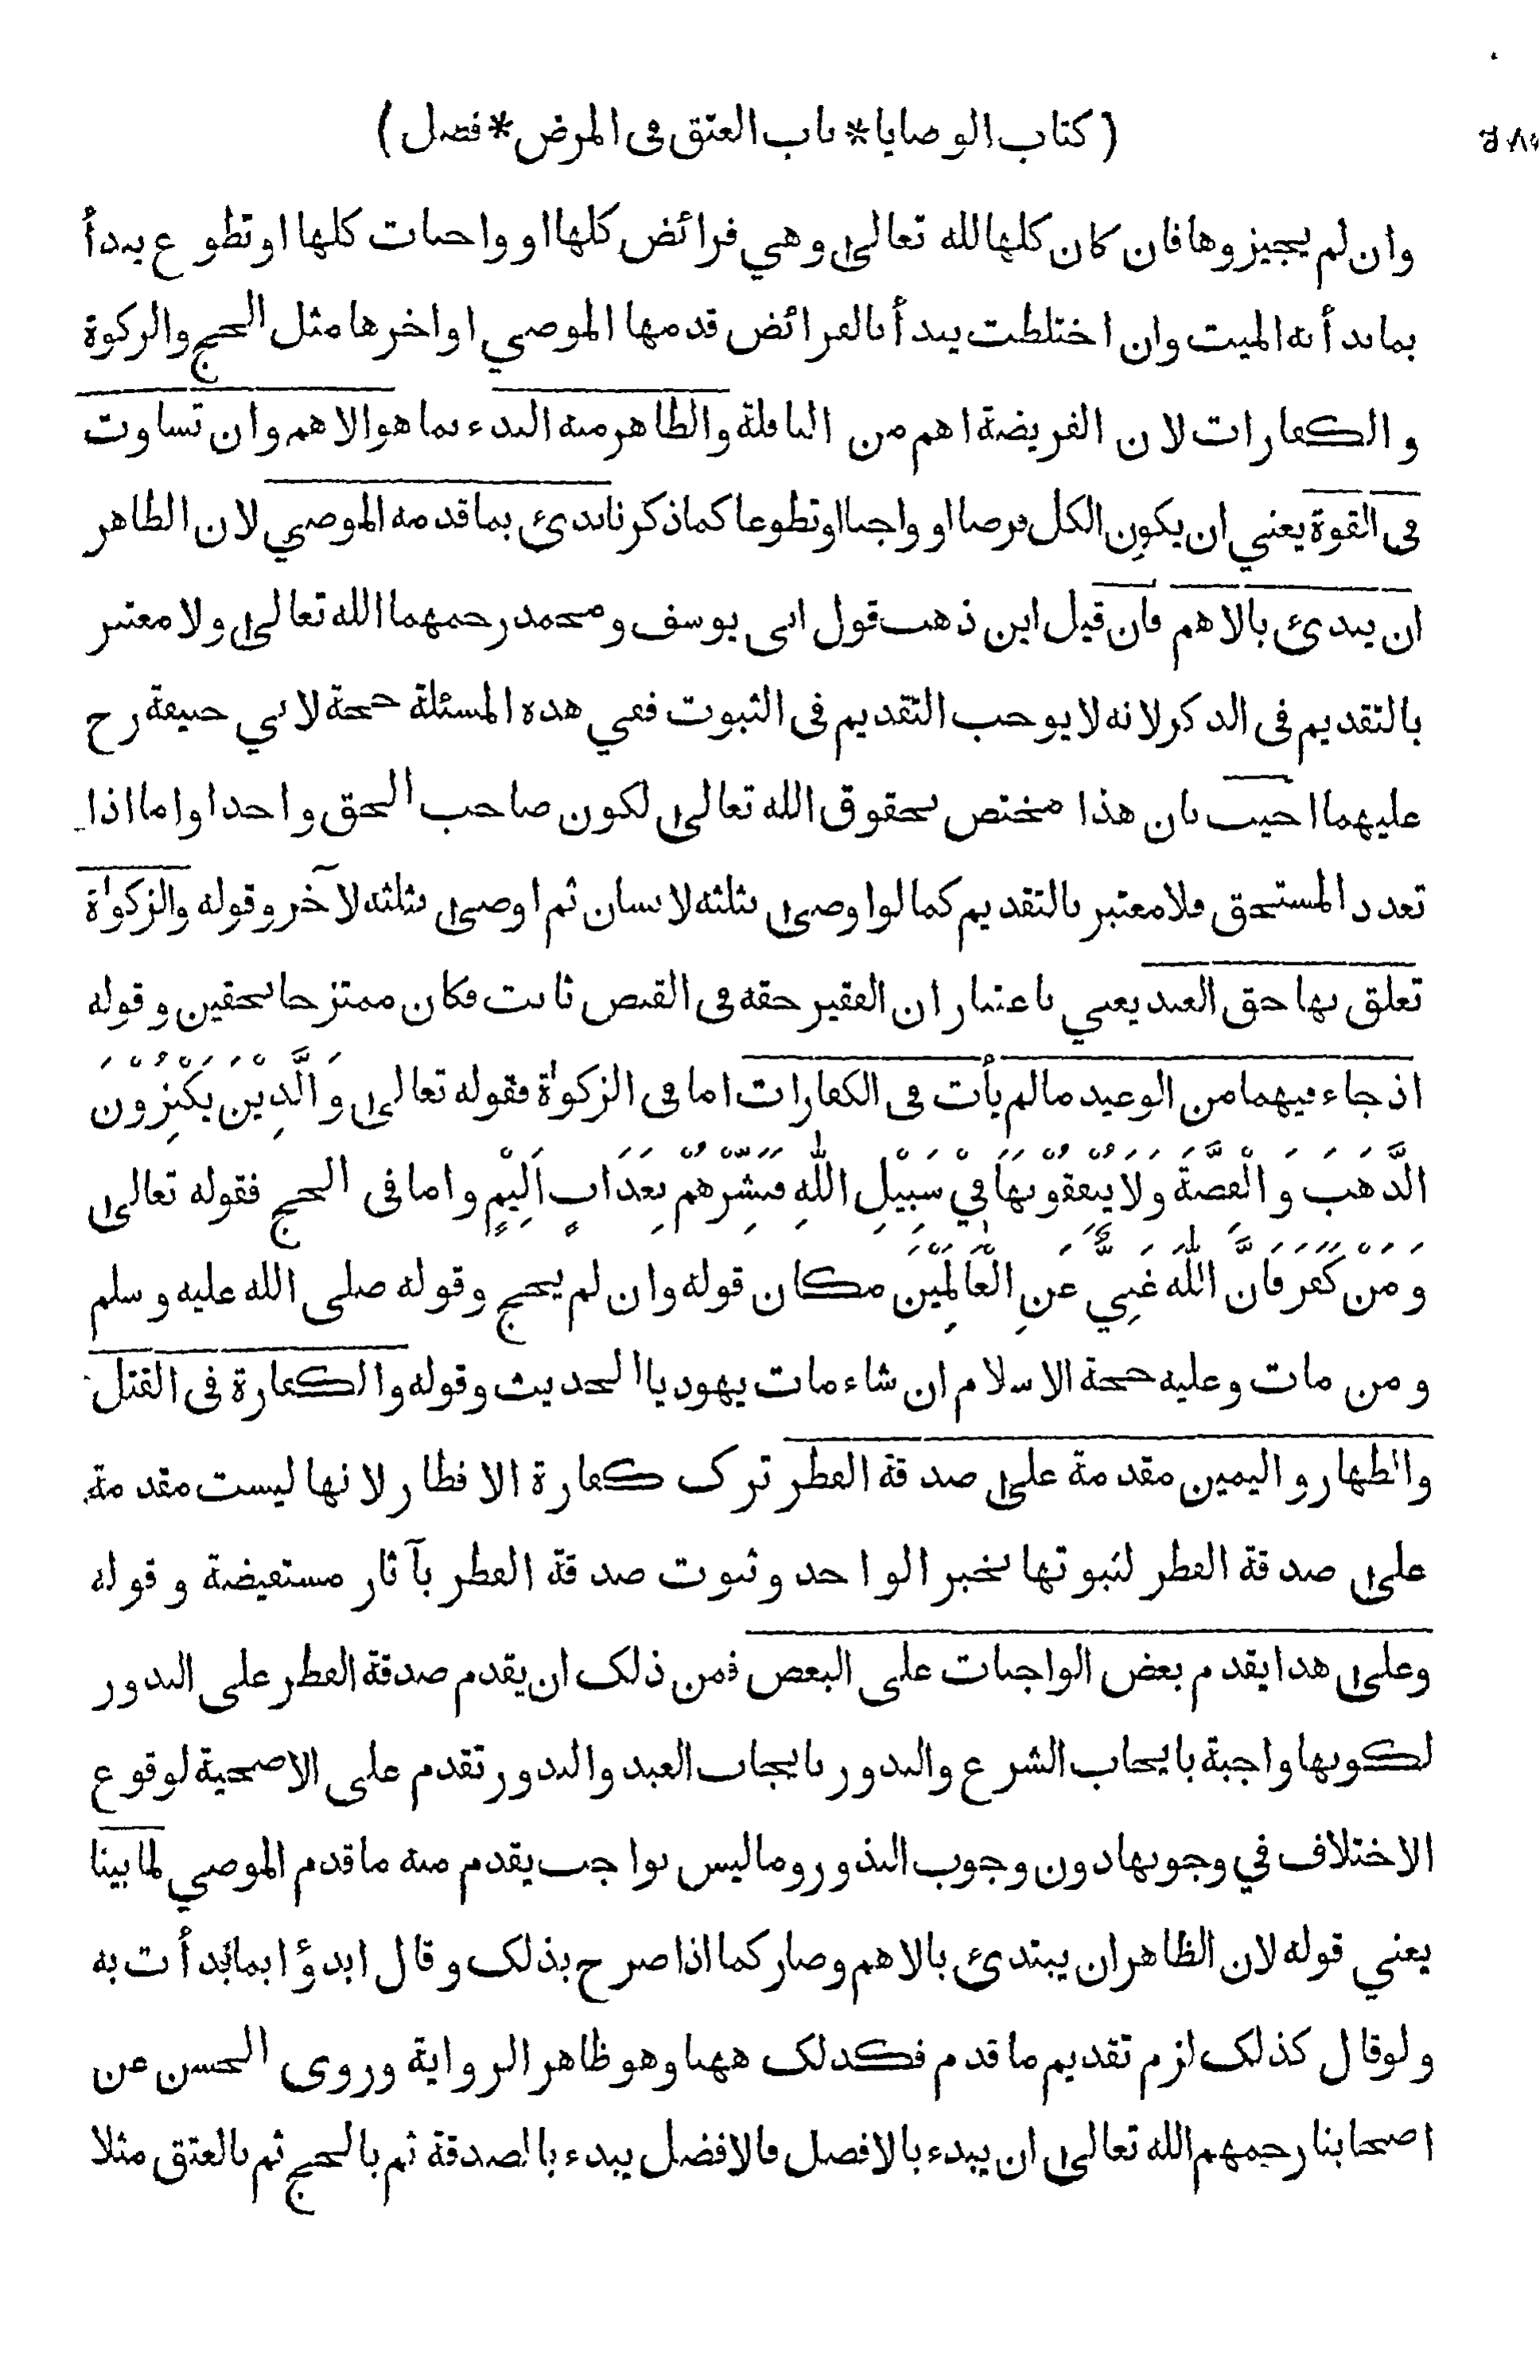 ( كتاب الوصايا * باب العتق في المرض * فصل )
وان لم يجيزوها فان كان كلها لله تعالى وهي فرائض كلها او واجبات كلها او تطوع يبدأ
بما بدأ به الميت وان اختلطت يبدأ بالفرائض قدمها الموصي او اخرها مثل الحج والزكوة
والكفارات لان الفريضة اهم من النافلة والظاهر منه البدء بما هو الاهم وان تساوت
في القوة يعني ان يكون الكل فرضا او واجبا او تطوعا كما ذكرنا بدئ بما قدمه الموصي لان الظاهر
ان يبدئ بالاهم فان قيل اين ذهب قول ابي يوسف ومحمد رحمهما الله تعالى ولا معتبر
بالتقديم في الذكر لانه لا يوجب التقديم في الثبوت ففي هذه المسئلة حجة لابي حنيفة رح
عليهما اجيب بان هذا مختص بحقوق الله تعالى لكون صاحب الحق واحدا واما اذا
تعدد المستحق فلا معتبر بالتقديم كما لو اوصى بثلثه لانسان ثم اوصى بثلثه لآخر وقوله والزكوٰة
تعلق بها حق العبد يعني باعتبار ان الفقير حقه في القبض ثابت فكان ممتزجا بحقين وقوله
اذ جاء فيهما من الوعيد ما لم يأت في الكفارات اما في الزكوٰة فقوله تعالى وَالَّذِيْنَ يَكْنِزُوْنَ
الذَّهَبَ وَالْفِضَّةَ وَلَا يُنْفِقُوْنَهَا فِيْ سَبِيْلِ اللّٰهِ فَبَشِّرْهُمْ بِعَذَابٍ اَلِيْمٍ واما في الحج فقوله تعالى
وَمَنْ كَفَرَ فَاِنَّ اللّٰهَ غَنِيٌّ عَنِ الْعَالَمِيْنَ مكان قوله وان لم يحج وقوله صلى الله عليه وسلم
ومن مات وعليه حجة الاسلام ان شاء مات يهوديا الحديث وقوله والكفارة في القتل
والظهار واليمين مقدمة على صدقة الفطر ترك كفارة الافطار لانها ليست مقدمة
على صدقة الفطر لثبوتها بخبر الواحد وثبوت صدقة الفطر بآثار مستفيضة وقوله
وعلى هذا يقدم بعض الواجبات على البعض فمن ذلك ان يقدم صدقة الفطر على النذور
لكونها واجبة بايجاب الشرع والنذور بايجاب العبد والنذور تقدم على الاضحية لوقوع
الاختلاف في وجوبها دون وجوب النذور وما ليس بواجب يقدم منه ما قدم الموصي لما بينا
يعني قوله لان الظاهر ان يبتدئ بالاهم وصار كما اذا صرح بذلك وقال ابدؤا بما بدأت به
ولو قال كذلك لزم تقديم ما قدم فكذلك ههنا وهو ظاهر الرواية وروى الحسن عن
اصحابنا رحمهم الله تعالى ان يبدء بالافضل فالافضل يبدء بالصدقة ثم بالحج ثم بالعتق مثلا